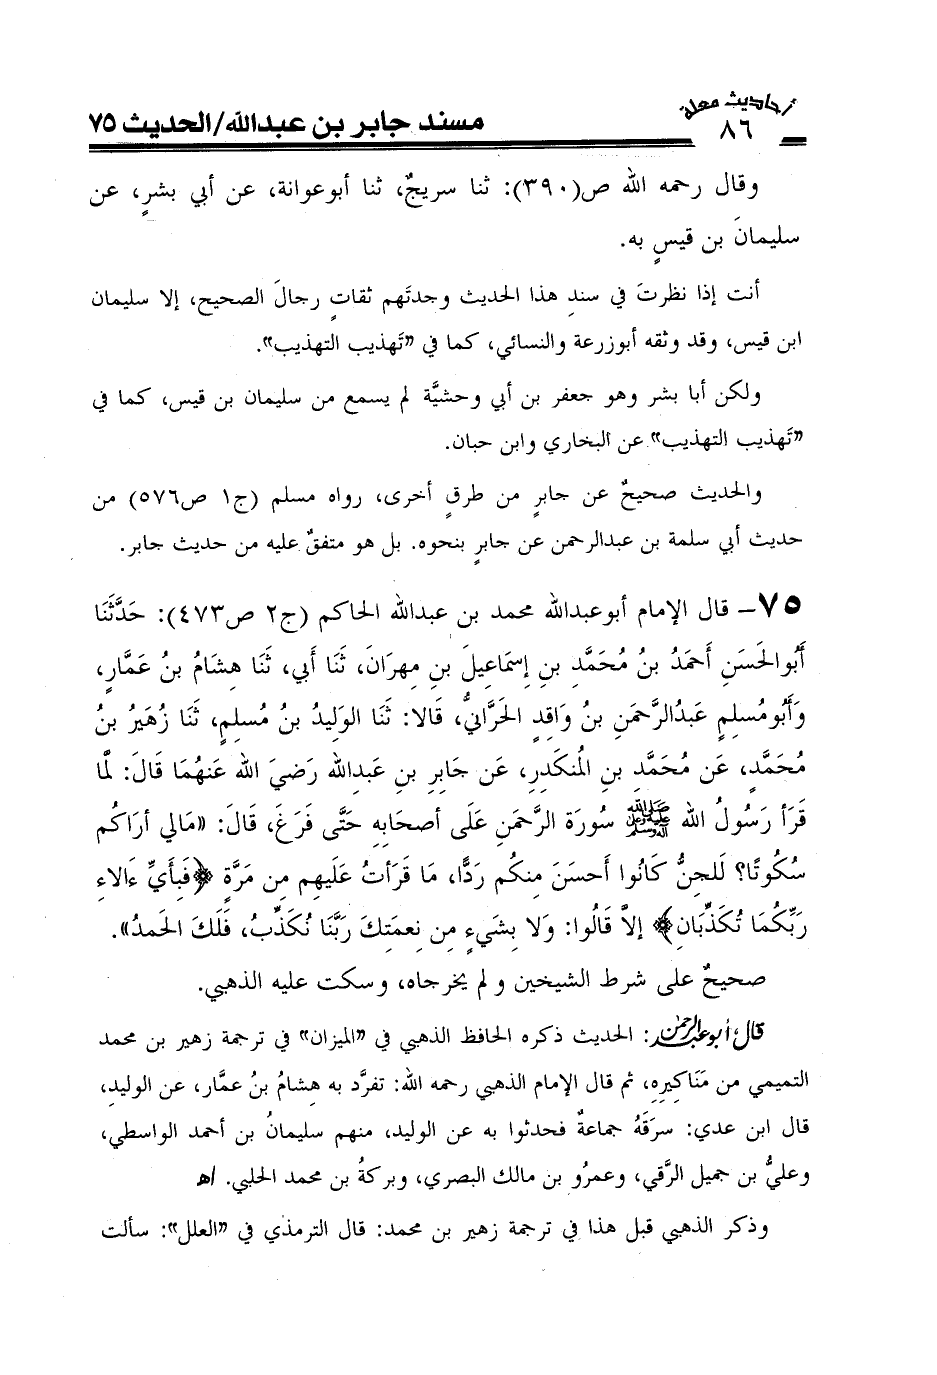 أحاديث معلة
٨٦
مسند جابر بن عبدالله/الحديث ٧٥
وقال رحمه الله ص(٣٩٠): ثنا سريجٌ، ثنا أبوعوانة، عن أبي بشرٍ، عن
سليمانَ بن قيسٍ به.
أنت إذا نظرتَ في سندِ هذا الحديث وجدتَهم ثقاتٍ رجالَ الصحيح، إلا سليمان
ابن قيس، وقد وثقه أبوزرعة والنسائي، كما في «تَهذيب التهذيب».
ولكن أبا بشر وهو جعفر بن أبي وحشيَّة لم يسمع من سليمان بن قيس، كما في
«تَهذيب التهذيب» عن البخاري وابن حبان.
والحديث صحيحٌ عن جابرٍ من طرقٍ أخرى، رواه مسلم (ج١ ص٥٧٦) من
حديث أبي سلمة بن عبدالرحمن عن جابرٍ بنحوه. بل هو متفقٌ عليه من حديث جابر.
٧٥- قال الإمام أبوعبدالله محمد بن عبدالله الحاكم (ج٢ ص٤٧٣): حَدَّثَنَا
أَبُوالحَسَنِ أَحمَدُ بنُ مُحَمَّدِ بنِ إسمَاعيلَ بنِ مِهرَانَ، ثَنَا أَبي، ثَنَا هشَامُ بنُ عَمَّارٍ،
وَأَبُومُسلمٍ عَبدُالرَّحمَنِ بنُ وَاقدٍ الحَرَّانيُّ، قَالا: ثَنَا الوَليدُ بنُ مُسلمٍ، ثَنَا زُهَيرُ بنُ
مُحَمَّدٍ، عَن مُحَمَّدِ بنِ المُنكَدرِ، عَن جَابرِ بنِ عَبدالله رَضيَ الله عَنهُمَا قَالَ: لمَّا
قَرَأَ رَسُولُ الله ﷺ سُورَةَ الرَّحمَنِ عَلَى أَصحَابِهِ حَتَّى فَرَغَ، قَالَ: «مَالي أرَاكُم
سُكُوتًا؟ لَلجنُّ كَانُوا أَحسَنَ منكُم رَدًّا، مَا قَرَأتُ عَلَيهِم مِن مَرَّةٍ ﴿فَبأَيِّ ءَالاءِ
رَبِّكُمَا تُكَذِّبَانِ﴾ إلاَّ قَالُوا: وَلا بِشَيءٍ مِن نِعمَتِكَ رَبَّنَا نُكَذِّبُ، فَلَكَ الحَمدُ».
صحيحٌ على شرط الشيخين و لم يخرجاه، وسكت عليه الذهبي.
قال أبو عبد الرحمن: الحديث ذكره الحافظ الذهبي في «الميزان» في ترجمة زهير بن محمد
التميمي من مَنَاكِيرِهِ، ثم قال الإمام الذهبي رحمه الله: تفرَّد به هشامُ بنُ عمَّار، عن الوليدِ،
قال ابن عدي: سرَقَهُ جماعةٌ فحدثوا به عن الوليد، منهم سليمانُ بن أحمد الواسطي،
وعليُّ بن جميل الرَّقي، وعمرُو بن مالك البصري، وبركةُ بن محمد الحلبي. اهـ
وذكر الذهبي قبل هذا في ترجمة زهير بن محمد: قال الترمذي في «العلل»: سألت